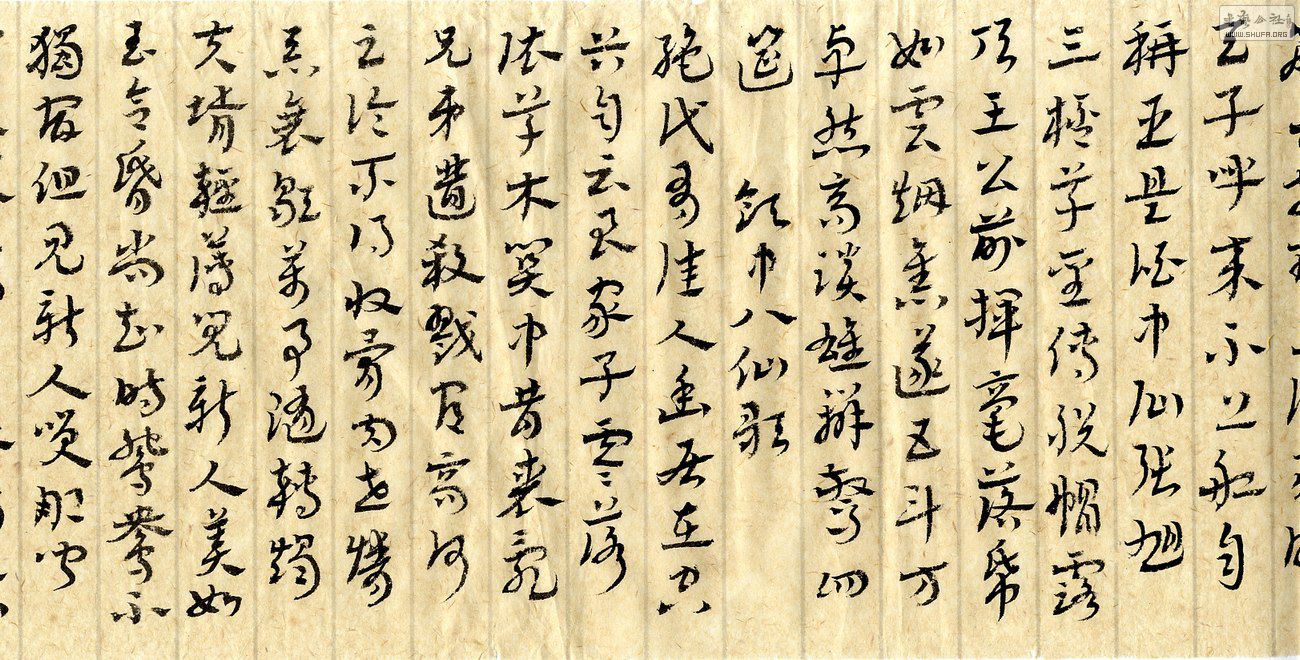 天子呼来不上船自
稱臣是酒中仙張旭
三杯草聖傳脱帽露
頂王公前揮毫落紙
如雲烟焦遂五斗方
卓然高談雄辯驚四
筵　飲中八仙歌
絶代有佳人幽居在空
谷自云良家子零落
依草木關中昔喪亂
兄弟遭殺戮官高何
足論不得收骨肉世情
惡衰歇萬事隨轉燭
夫壻輕薄兒新人美如
玉合昏尚知時鴛鴦不
獨宿但見新人笑那聞
WWW.SHUFA.ORG